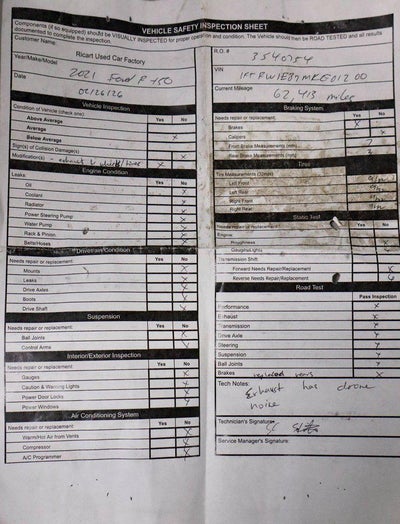 VEHICLE SAFETY INSPECTION SHEET
Components (if so equipped) should be VISUALLY INSPECTED for proper operation and condition. The Vehicle should then be ROAD TESTED and all results
documented to complete the inspection.
Customer Name:
Ricart Used Car Factory
Year/Make/Model
2021 Ford F 150
Date
02/26/26
Vehicle Inspection
Condition of Vehicle (check one): Yes No
Above Average
Average
Below Average X
Sign(s) of Collision Damage(s) X
Modification(s) - exhaust X
Engine Condition
Leaks Yes No
Oil
Coolant
Radiator
Power Steering Pump
Water Pump
Rack & Pinion
Belts/Hoses
Drivetrain/Condition
Needs repair or replacement: Yes No
Mounts
Leaks
Drive Axles
Boots
Drive Shaft
Suspension
Needs repair or replacement: Yes No
Ball Joints
Control Arms
Interior/Exterior Inspection
Needs repair or replacement: Yes No
Gauges
Caution & Warning Lights
Power Door Locks
Power Windows
Air Conditioning System
Needs repair or replacement: Yes No
Warm/Hot Air from Vents
Compressor
A/C Programmer
R.O. #
3540754
VIN
Current Mileage
62,413 miles
Braking System
Needs repair or replacement: Yes No
Brakes X
Calipers
Front Brake Measurements (mm) 7
Rear Brake Measurements (mm) 3
Tires
Tire Measurements (32nds)
Left Front
Left Rear
Right Front
Right Rear
Static Test
Needs repair or replacement: Yes No
Engine:
Roughness
Gauges/Lights
Transmission Shift:
Forward Needs Repair/Replacement
Reverse Needs Repair/Replacement
Road Test
Pass Inspection
Performance
Exhaust
Transmission
Drive Axle
Steering
Suspension
Ball Joints
Brakes replaced rears
Tech Notes: Exhaust has drone
noise
Technician's Signature:
Service Manager's Signature: